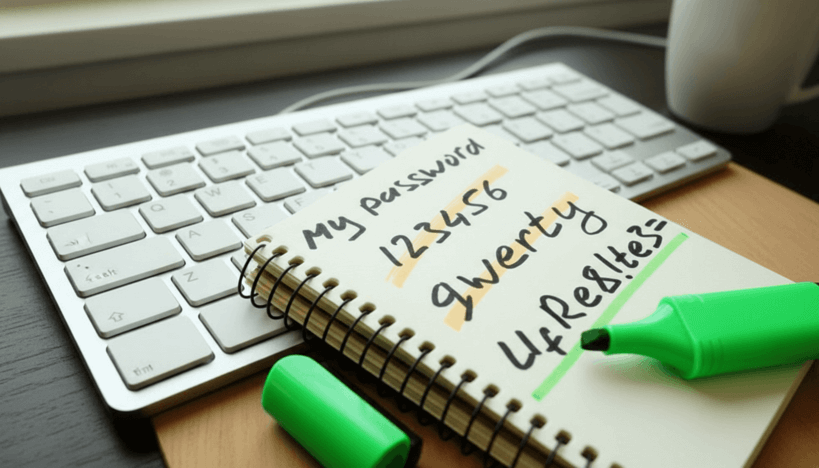 My password
123456
qwerty
4fRe8!te3=
Q W E
A S
Z